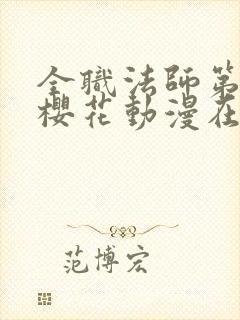 全職法師第
櫻花動漫在
范博宏